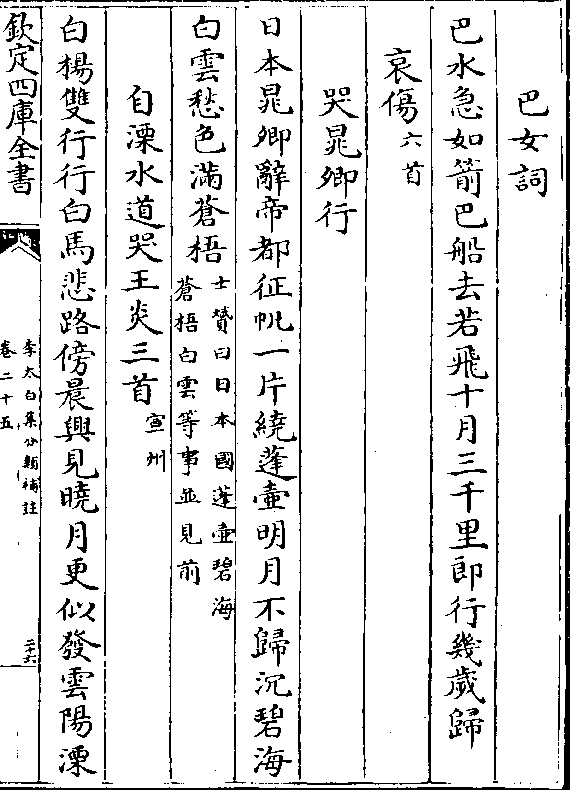 巴女詞
巴水急如箭巴船去若飛十月三千里郎行幾歲歸
哀傷六首
哭晁卿行
日本晁卿辭帝都征帆一片繞蓬壺明月不歸沉碧海
白雲愁色滿蒼梧士贇曰日本國蓬壺碧海
蒼梧白雲等事並見前
自溧水道哭王炎三首宣州
白楊雙行行白馬悲路傍晨興見曉月更似發雲陽溧
欽定四庫全書
李太白集分類補註
卷二十五
二十六